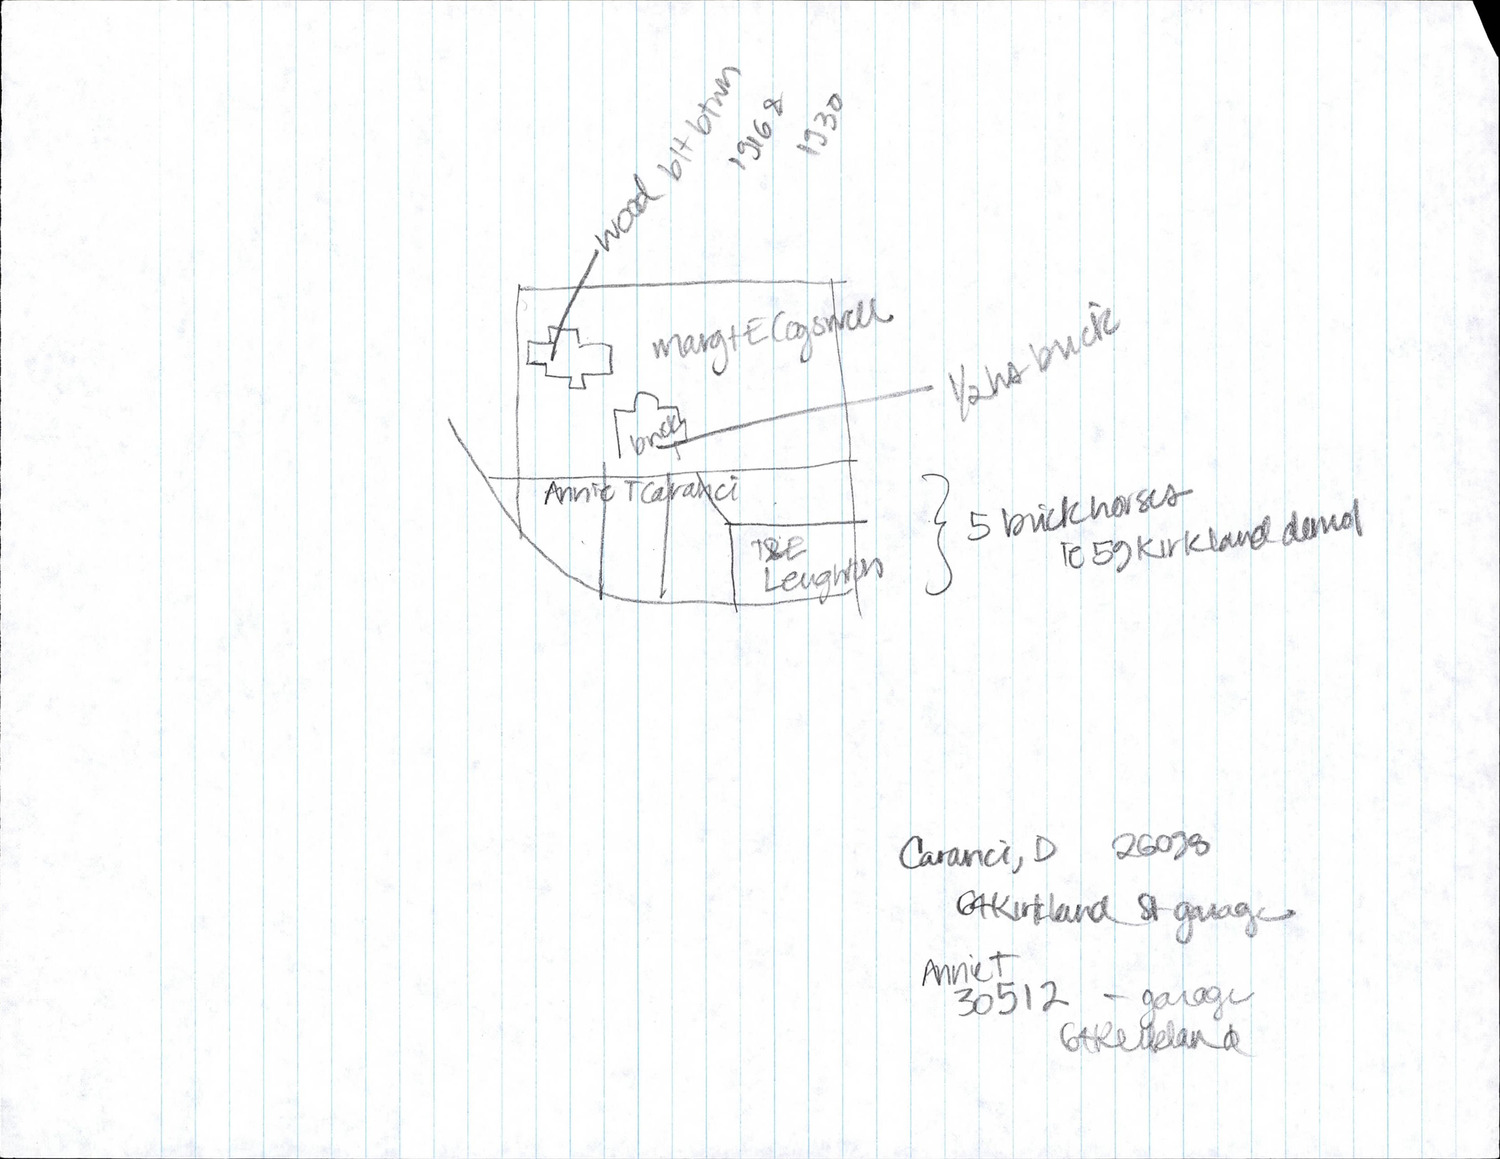 wood blt btwn
1916 &
1930
Marg + E Cogswell
1/2 hs brick
brick
Annie T Caranci
5 brick horses
59 Kirkland demol
T&E
Leughton
Caranci, D 26098
64 Kirkland St garage
Annie T
30512 - garage
64 Kirkland